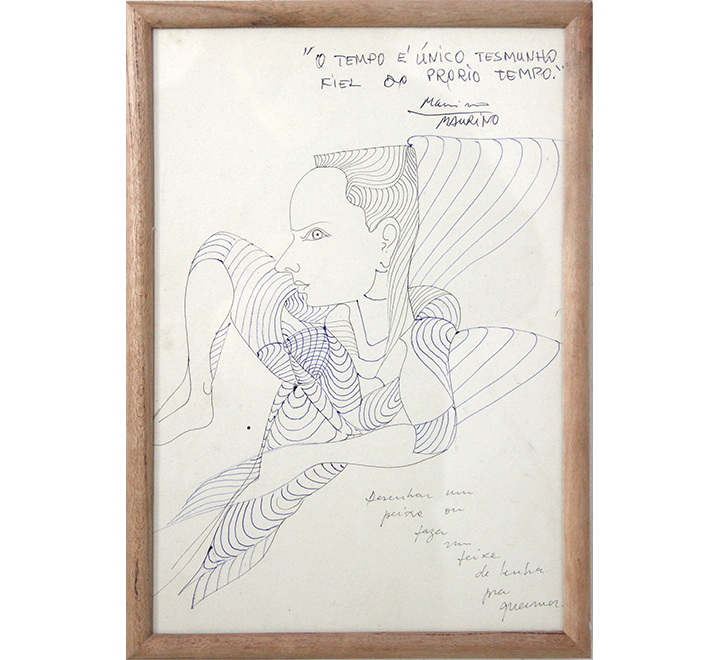 "O TEMPO E' ÚNICO TESMUNHO
FIEL DO PRORIO TEMPO."
Maurino
MAURINO
Desenhar um
peixe ou
fazer
um
feixe
de lenha
pra
queimar.